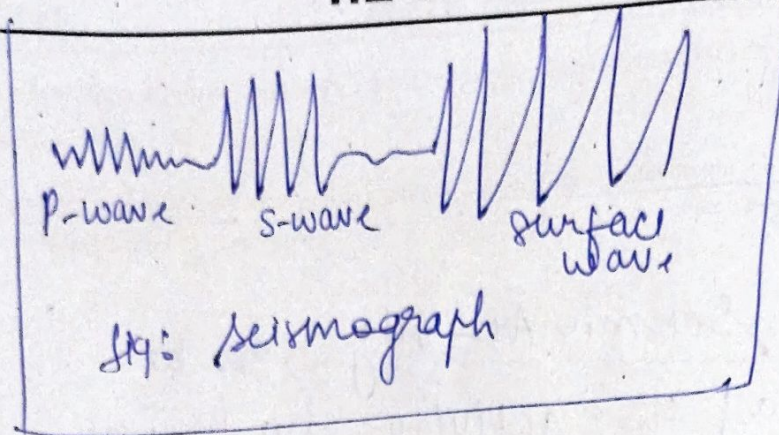 P-wave S-wave surface
wave
fig: seismograph